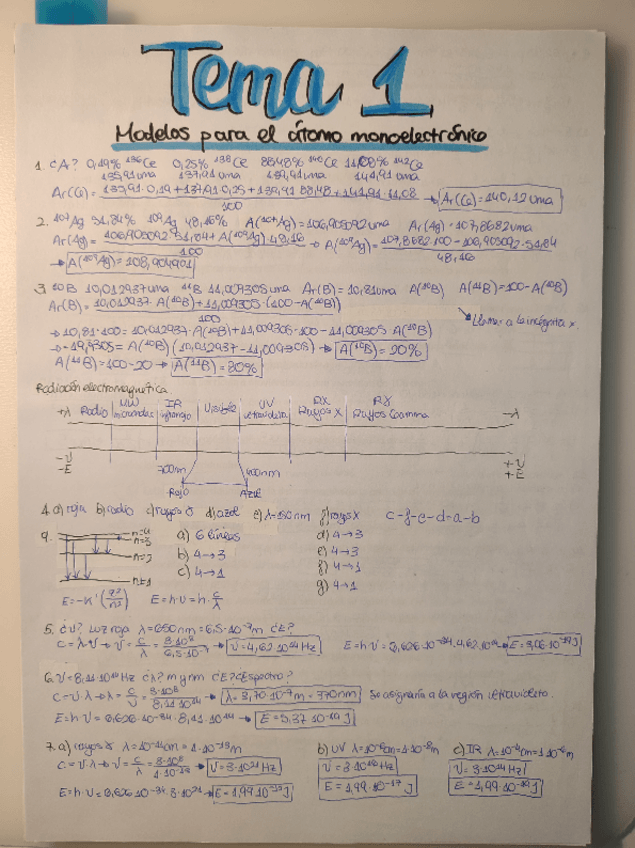 Tema 1
Modelos para el átomo monoelectrónico
1. ¿A? 0,19% ¹³⁶Ce 0,25% ¹³⁸Ce 88'48% ¹⁴⁰Ce 11,08% ¹⁴²Ce
135,91uma 137,91 uma 139,91uma 141,91 uma
Ar(Ce) = 135,91·0,19 + 137,91·0,25 + 139,91·88,48 + 141,91·11,08 / 100 → Ar(Ce) = 140,12 uma
2. ¹⁰⁷Ag 51,84% ¹⁰⁹Ag 48,16% A(¹⁰⁷Ag) = 106,905092uma Ar(Ag) = 107,8682 uma
Ar(Ag) = 106,905092·51,84 + A(¹⁰⁹Ag)·48,16 / 100 → A(¹⁰⁹Ag) = 107,8682·100 - 106,905092·51,84 / 48,16
→ A(¹⁰⁹Ag) = 108,904901
3. ¹⁰B 10,012937uma ¹¹B 11,009305 uma Ar(B) = 10,81uma A(¹⁰B) A(¹¹B) = 100 - A(¹⁰B)
Ar(B) = 10,012937·A(¹⁰B) + 11,009305·(100 - A(¹⁰B)) / 100
Llamar a la incógnita x.
→ 10,81·100 = 10,012937·A(¹⁰B) + 11,009305·100 - 11,009305 A(¹⁰B)
→ -19,9305 = A(¹⁰B) (10,012937 - 11,009305) → A(¹⁰B) = 20%
A(¹¹B) = 100 - 20 → A(¹¹B) = 80%
Radiación electromagnética
+λ Radio MW microondas IR infrarrojo Visible UV ultravioleta RX Rayos X Rγ Rayos Gamma -λ
-ν +ν
-E +E
700nm 400nm
Rojo Azul
4. a) roja b) radio c) rayos γ d) azul e) λ=150 nm f) rayos X c-f-e-d-a-b
9. n=4 a) 6 líneas d) 4→3
n=3
n=2 b) 4→3 e) 4→3
c) 4→1 f) 4→1
n=1 g) 4→1
E = -K'(Z²/n²) E = h·ν = h·c/λ
5. ¿ν? Luz roja λ = 650nm = 6,5·10⁻⁷m ¿E?
c = λ·ν → ν = c/λ = 3·10⁸/6,5·10⁻⁷ → ν = 4,62·10¹⁴Hz E = h·ν = 6,626·10⁻³⁴·4,62·10¹⁴ → E = 3,06·10⁻¹⁹J
6. ν = 8,11·10¹⁴Hz ¿λ? m y nm ¿E? ¿Espectro?
c = ν·λ → λ = c/ν = 3·10⁸/8,11·10¹⁴ → λ = 3,70·10⁻⁷m = 370nm Se asignaría a la región ultravioleta.
E = h·ν = 6,626·10⁻³⁴·8,11·10¹⁴ → E = 5,37·10⁻¹⁹J
7. a) rayos γ λ = 10⁻¹¹cm = 1·10⁻¹³m b) UV λ = 10⁻⁶cm = 1·10⁻⁸m c) IR λ = 10⁻⁴cm = 1·10⁻⁶m
c = ν·λ → ν = c/λ = 3·10⁸/1·10⁻¹³ → ν = 3·10²¹Hz ν = 3·10¹⁶Hz ν = 3·10¹⁴Hz
E = h·ν = 6,626·10⁻³⁴·3·10²¹ → E = 1,99·10⁻¹²J E = 1,99·10⁻¹⁷J E = 1,99·10⁻¹⁹J